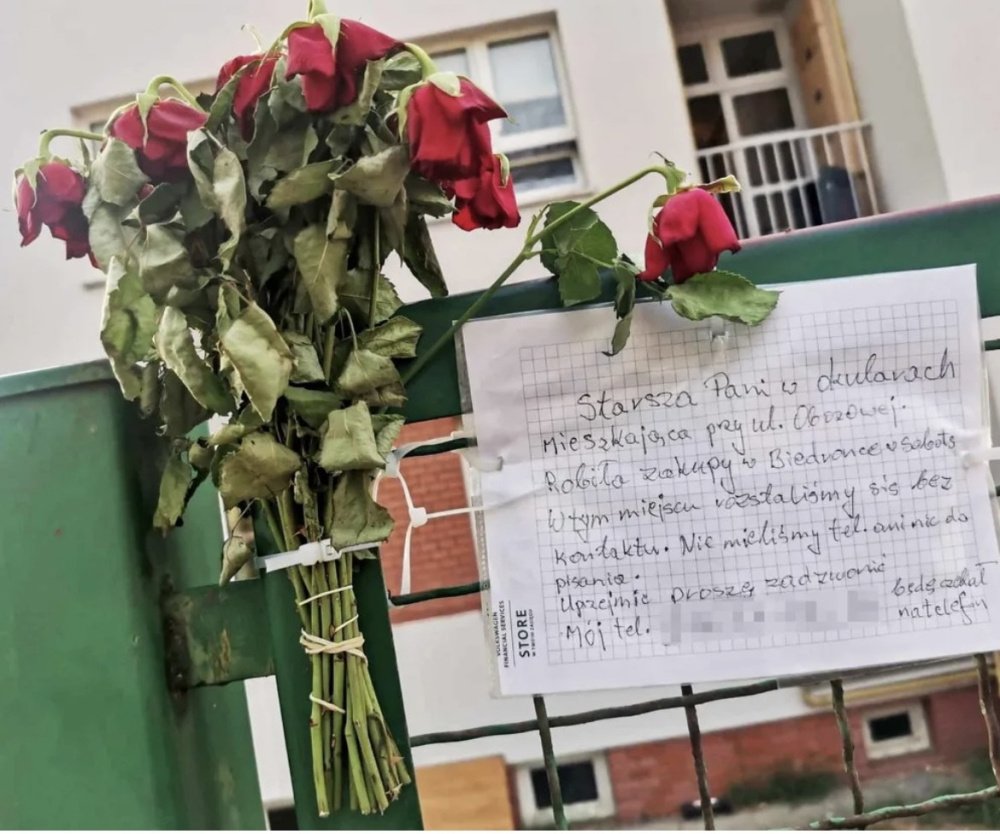 Starsza Pani w okularach
mieszkająca przy ul. Obozowej.
Robiła zakupy w Biedronce w sobotę
W tym miejscu rozstaliśmy się bez
kontaktu. Nie mieliśmy tel. ani nic do
pisania.
Uprzejmie proszę zadzwonić
Mój tel.
będę czekał
na telefon
VOLKSWAGEN
FINANCIAL SERVICES
STORE